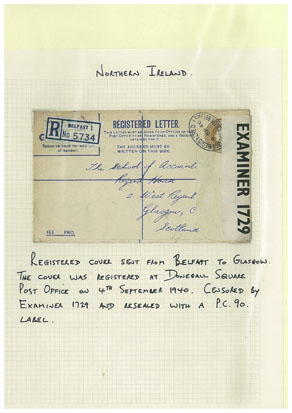 NORTHERN IRELAND.
R BELFAST 1
No 5734
REGISTERED LETTER.
THIS LETTER MUST BE GIVEN TO AN OFFICER OF THE
POST OFFICE TO BE REGISTERED, AND A RECEIPT
THE ADDRESS MUST BE
WRITTEN ON THIS SIDE.
EXAMINER 1729
The School of Account
Regent House
2 West Regent
Glasgow, C
Scotland
REGISTERED COVER SENT FROM BELFAST TO GLASGOW.
THE COVER WAS REGISTERED AT DONEGALL SQUARE
POST OFFICE ON 4TH SEPTEMBER 1940. CENSORED BY
EXAMINER 1729 AND RESEALED WITH A P.C. 90.
LABEL.